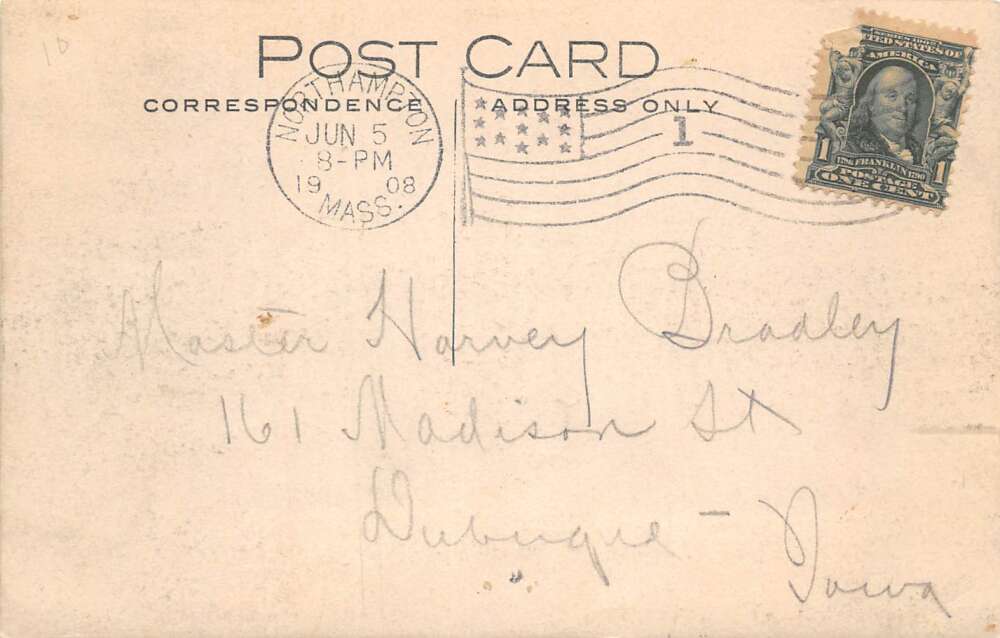 10
POST CARD
CORRESPONDENCE
ADDRESS ONLY
NORTHAMPTON
JUN 5
8-PM
19 08
MASS.
1
SERIES 1902
UNITED STATES OF
AMERICA
1 1706 FRANKLIN 1790 1
POSTAGE
ONE CENT
Master Harvey Bradley
161 Madison St
Dubuque -
Iowa